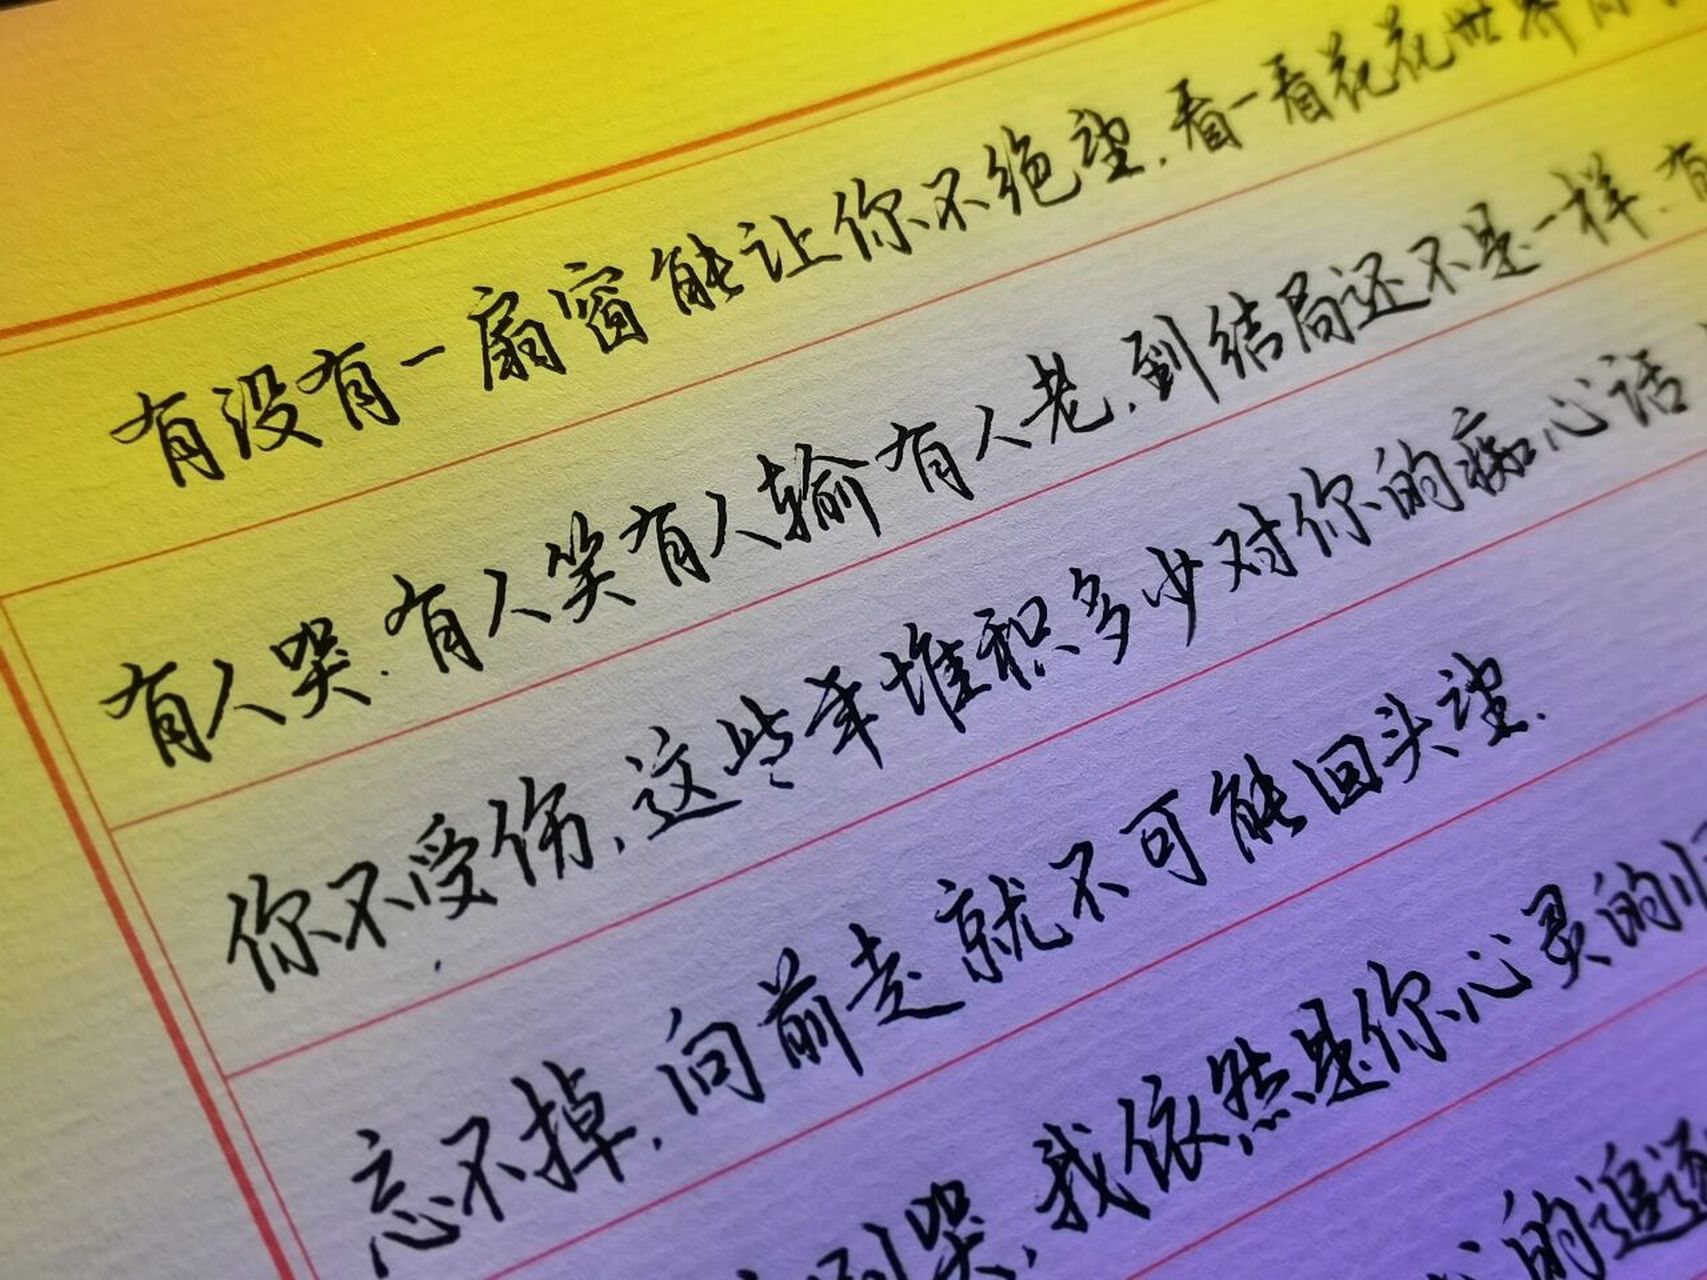 有没有一扇窗能让你不绝望.看一看花花世界
有人哭.有人笑有人输有人老.到结局还不是一样.有
你不受伤.这些年堆积多少对你的痴心话
忘不掉.向前走就不可能回头望.
哭.我依然是你心灵的归
的追逐